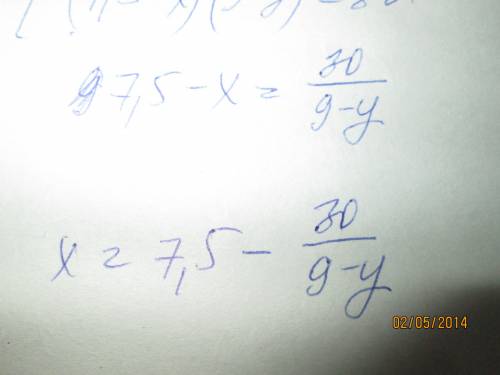 7,5 - x = 30/(9-y)
x = 7,5 - 30/(9-y)
02/05/2014